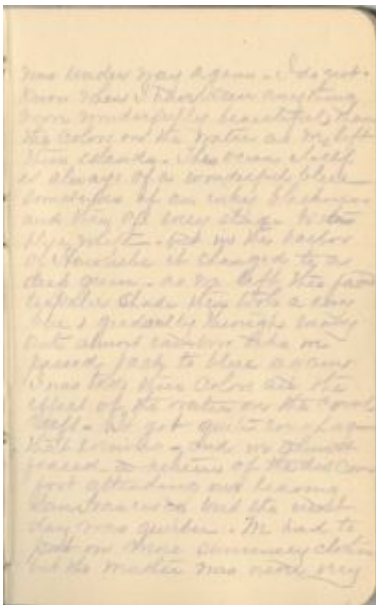 was under way again - I do not
know when I have seen anything
more wonderfully beautiful than
the colors on the water as we left
these islands - The ocean itself
is always of a wonderful blue
sometimes of an inky blackness
and then of every stage to
blue - but in the harbor
of Honolulu it changed to a
dark green - as we left this
shade then took a
& gradually through
out almost rainbow like we
passed back to blue again
I was told these colors are the
effect of the water on the coral
reef - It got quite rough again
that evening - and we almost
feared a return of the discom
fort attending our leaving
San Francisco but the next
day was quieter - We had to
put on more summery clothes
but the weather was never very